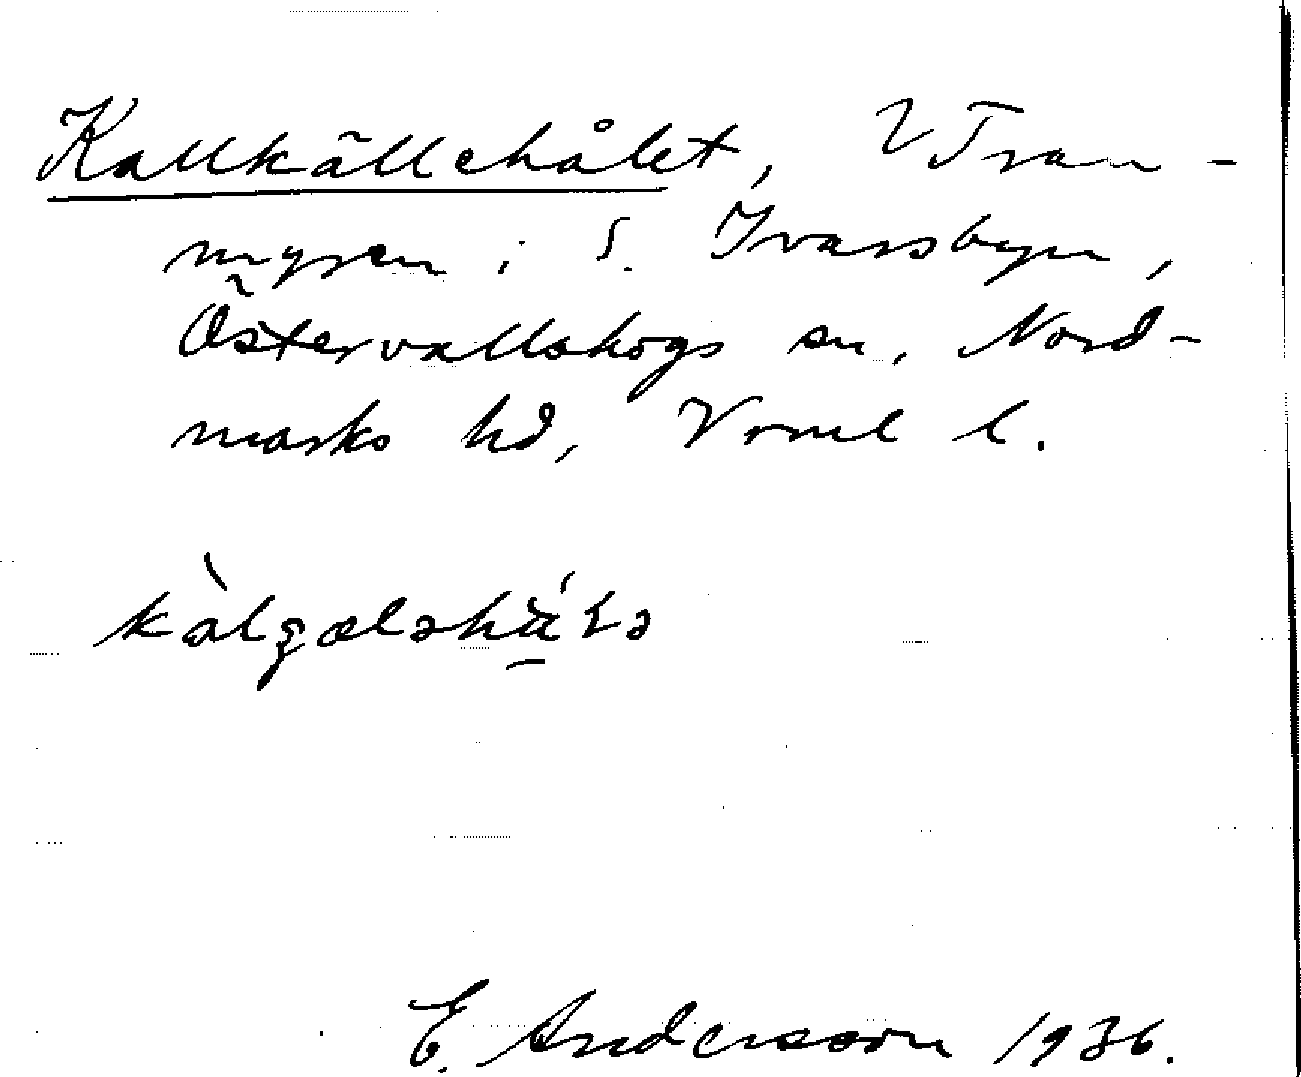 Kallkällehålet, V Tran-
myren i S. Ivarsbyn,
Östervallskogs sn, Nord-
marks hd, Vrml l.
E. Andersson 1936.